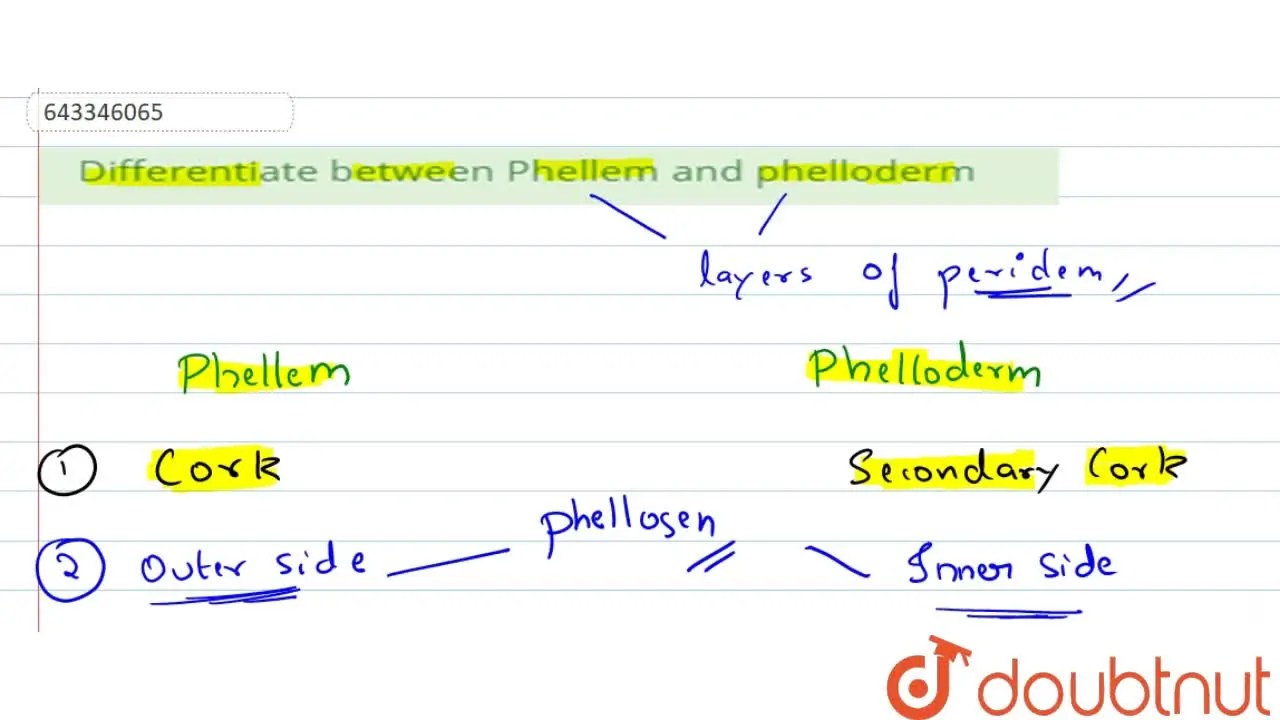 643346065
Differentiate between Phellem and phelloderm
layers of peridem
Phellem Phelloderm
1 Cork Secondary Cork
phellosen
2 Outer side Inner side
doubtnut